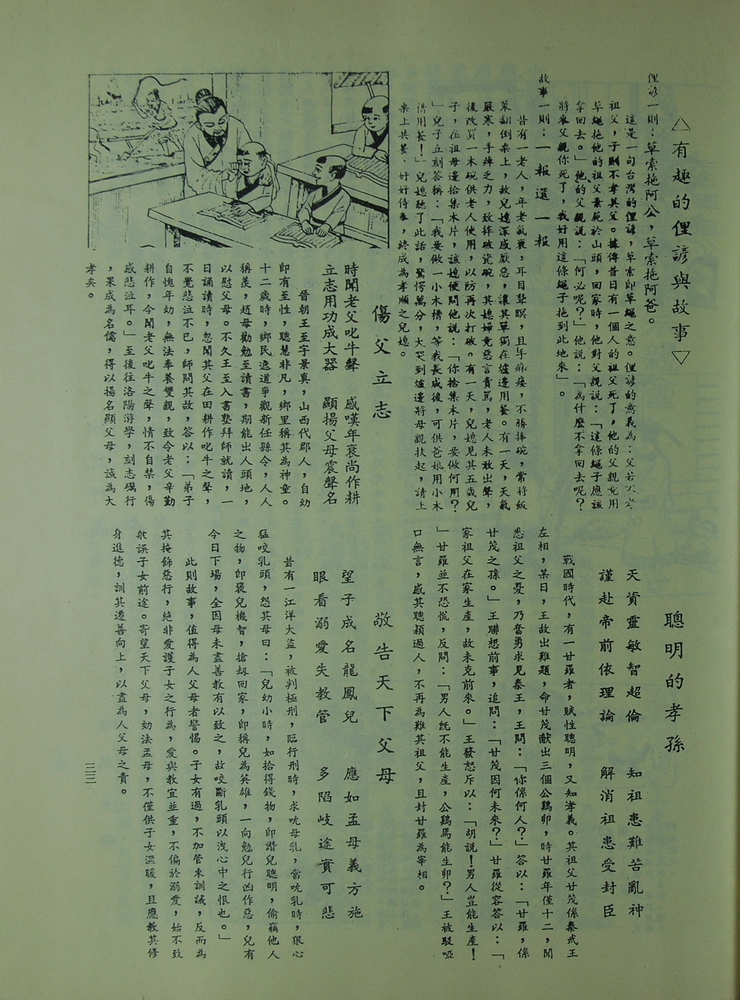 △有趣的俚諺與故事▽
俚諺一則：草索拖阿公，草索拖阿爸。
這是一句台灣的俚諺，草索即草繩之意。俚諺的意義為：父若不孝
祖父，子則不孝其父。據傳昔日有一個人的祖父死了，他的父親竟用
草繩拖他的祖父棄屍於山頭，回家時，他對父親說：「這條繩子應該
拿回去。」他的父親說：「何必呢？」他說：「為什麼不拿回去呢？
將來父親你死了，我好用這條繩子拖到此地來」。
故事一則：一報還一報
昔有一老人，年老氣衰，耳目聾暝，且手麻痺，不勝捧碗，常將飯
菜翻倒桌上，故兒媳深感厭惡，讓其單獨在爐邊用餐。有一天，天氣
嚴寒，手痺乏力，致摔破瓷碗，其媳婦竟惡言責罵，老人未敢出聲，
後改買一木碗供老人使用，以防再次打破。有一天，兒媳見其五歲兒
子，在祖母邊拾集木片，該媳便問他說：「你拾集木片，要做何用？
」兒子立刻答稱：「我要做一小木槽，等我長成後，可供爸娘用小木
槽用餐！」兒媳聽了此話，驚愕萬分，大哭到爐邊將母親扶起，請上
桌上共餐，好好侍奉，終成為孝順之兒媳。
傷父立志
時聞老父叱牛聲　感嘆年衰尚作耕
立志用功成大器　顯揚父母震聲名
晉朝王至字景真，山西代郡人，自幼
即有至性，聰慧非凡，鄉里稱其為神童。
十二歲時，鄉民逸道爭觀新任縣令，人人
稱羨，趙母勸勉至讀書，期能出人頭地，
以慰父母。不久王至入書塾拜師就讀，一
日誦讀時，忽聞其父在田耕作叱牛之聲，
不覺悲泣不已，師問其故，答以：「弟子
自愧年幼，無法奉養雙親，致令老父辛勤
耕作，今聞老父叱牛之聲，情不自禁，傷
感悲泣耳。」至後往洛陽游學，刻志礪行
，果成為名儒，得以揚名顯父母，誠為大
孝矣。
聰明的孝孫
天資靈敏智超倫　知祖患難苦亂神
謹赴帝前依理論　解消祖患受封臣
戰國時代，有一甘羅者，賦性聰明，又知孝義。其祖父甘茂係秦武王
左相，某日，王故出難題，命甘茂獻出三個公鷄卵，時甘羅年僅十二，聞
悉祖父之憂，乃奮勇求見秦王，王問：「你係何人？」答以：「甘羅，係
甘茂之孫。」王聯想前事，追問：「甘茂因何未來？」甘羅從容答以：「
家祖父在家生產，故未克前來。」王發怒斥以：「胡說！男人豈能生產！
」甘羅並不恐慌，反問：「男人既不能生產，公鷄焉能生卵？」王被駁啞
口無言，感其聰穎過人，不再為難其祖父，且封甘羅為宰相。
敬告天下父母
望子成名龍鳳兒　應如孟母義方施
眼看溺愛失教管　多陷歧途實可悲
昔有一江洋大盜，被判極刑，臨行刑時，求吮母乳，當吮乳時，狠心
猛咬乳頭，怨其母曰：「兒幼小時，如拾得錢物，即讚兒聰明，偷竊他人
之物，即褒兒機智，搶劫回家，即稱兒為英雄，一向勉兒行凶作惡，兒有
今日下場，全因母未盡善教有以致之，故咬斷乳頭以洩心中之恨也。」
此則故事，值得為人父母者警惕。子女有過，不加管束訓誡，反而為
其掩飾惡行，絕非愛護子女之行為，愛與教宜並重，不偏於溺愛，始不致
貽誤子女前途。寄望天下父母，効法孟母，不僅供子女溫暖，且應教其修
身進德，訓其遷善向上，以盡為人父母之責。
三三